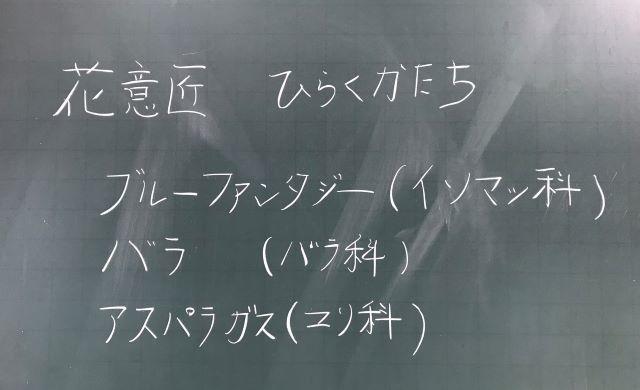 花意匠 ひらくかたち
ブルーファンタジー(イソマツ科)
バラ (バラ科)
アスパラガス(ユリ科)